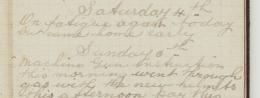 Saturday 4th
On fatigue again today
but came home early
Sunday 5th
Machine Gun Instruction
this morning went through
gas with the new helmets
this afternoon Day